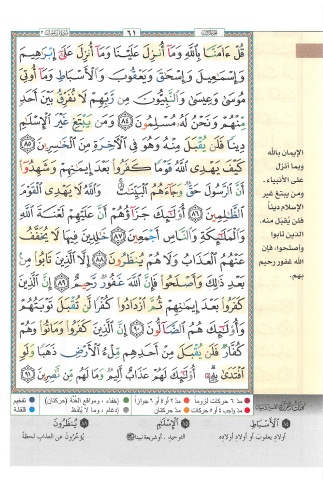 ٦١
قُلْ ءَامَنَّا بِٱللَّهِ وَمَآ أُنزِلَ عَلَيْنَا وَمَآ أُنزِلَ عَلَىٰٓ إِبْرَٰهِيمَ
وَإِسْمَٰعِيلَ وَإِسْحَٰقَ وَيَعْقُوبَ وَٱلْأَسْبَاطِ وَمَآ أُوتِىَ
مُوسَىٰ وَعِيسَىٰ وَٱلنَّبِيُّونَ مِن رَّبِّهِمْ لَا نُفَرِّقُ بَيْنَ أَحَدٍ
مِّنْهُمْ وَنَحْنُ لَهُۥ مُسْلِمُونَ ٨٤ وَمَن يَبْتَغِ غَيْرَ ٱلْإِسْلَٰمِ
دِينًا فَلَن يُقْبَلَ مِنْهُ وَهُوَ فِى ٱلْءَاخِرَةِ مِنَ ٱلْخَٰسِرِينَ ٨٥
كَيْفَ يَهْدِى ٱللَّهُ قَوْمًا كَفَرُوا۟ بَعْدَ إِيمَٰنِهِمْ وَشَهِدُوٓا۟
أَنَّ ٱلرَّسُولَ حَقٌّ وَجَآءَهُمُ ٱلْبَيِّنَٰتُ وَٱللَّهُ لَا يَهْدِى ٱلْقَوْمَ
ٱلظَّٰلِمِينَ ٨٦ أُو۟لَٰٓئِكَ جَزَآؤُهُمْ أَنَّ عَلَيْهِمْ لَعْنَةَ ٱللَّهِ
وَٱلْمَلَٰٓئِكَةِ وَٱلنَّاسِ أَجْمَعِينَ ٨٧ خَٰلِدِينَ فِيهَا لَا يُخَفَّفُ
عَنْهُمُ ٱلْعَذَابُ وَلَا هُمْ يُنظَرُونَ ٨٨ إِلَّا ٱلَّذِينَ تَابُوا۟ مِنۢ
بَعْدِ ذَٰلِكَ وَأَصْلَحُوا۟ فَإِنَّ ٱللَّهَ غَفُورٌ رَّحِيمٌ ٨٩ إِنَّ ٱلَّذِينَ
كَفَرُوا۟ بَعْدَ إِيمَٰنِهِمْ ثُمَّ ٱزْدَادُوا۟ كُفْرًا لَّن تُقْبَلَ تَوْبَتُهُمْ
وَأُو۟لَٰٓئِكَ هُمُ ٱلضَّآلُّونَ ٩٠ إِنَّ ٱلَّذِينَ كَفَرُوا۟ وَمَاتُوا۟ وَهُمْ
كُفَّارٌ فَلَن يُقْبَلَ مِنْ أَحَدِهِم مِّلْءُ ٱلْأَرْضِ ذَهَبًا وَلَوِ
ٱفْتَدَىٰ بِهِۦٓ أُو۟لَٰٓئِكَ لَهُمْ عَذَابٌ أَلِيمٌ وَمَا لَهُم مِّن نَّٰصِرِينَ ٩١
الإيمان بالله
وبما أنزل
على الأنبياء،
ومن يبتغ غير
الإسلام ديناً
فلن يُقبل منه.
الذين تابوا
وأصلحوا، فإن
الله غفور رحيم
بهم.
مدّ ٦ حركات لزوماً مدّ ٢ أو ٤ أو ٦ جوازاً إخفاء، ومواقع الغُنَّة (حركتان) تفخيم
مدّ واجب ٤ أو ٥ حركات مدّ حركتان إدغام، وما لا يُلفَظ قلقلة
٨٤ ٱلْأَسْبَاطِ
أولاد يعقوب أو أولاد أولاده
٨٥ ٱلْإِسْلَٰمِ
التوحيد، أو شريعة نبينا ﷺ
٨٨ يُنظَرُونَ
يُؤخَّرُونَ عن العذاب لحظةً